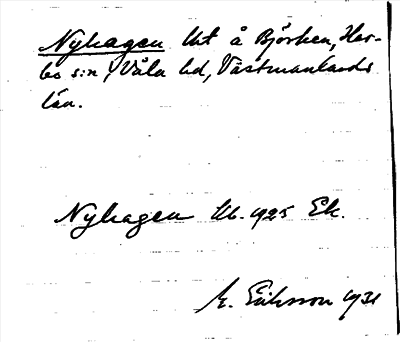 Nyhagen lht å Björken, Har-
bo s:n, Våla hd, Västmanlands
län.
Nyhagen Kb. 1925 Ek.
M. Eriksson 1931